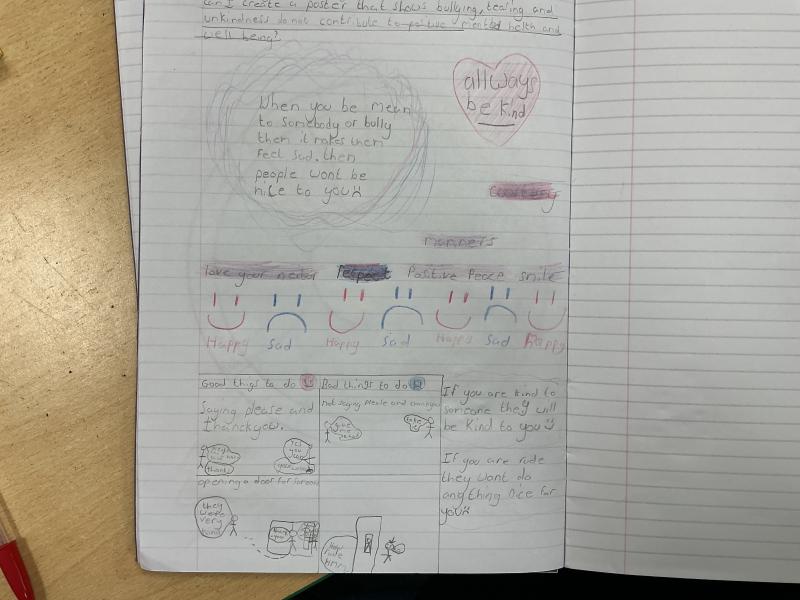 can I create a poster that shows bullying, teasing and
unkindness do not contribute to positive mental helth and
well being?
allways
be kind
When you be mean
to somebody or bully
them it makes them
feel sad. then
people wont be
nice to you
manners
love your neibor respect Positive Peace smile
Happy Sad Happy Sad Happy Sad Happy
Good thigs to do
Saying please and
thanckyou.
thanks
opening a door for
they
were
very
kind
Bad things to do
not saying please and
give
me
take
it
If you are kind to
someone they will
be kind to you
If you are rude
they wont do
anything nice for
you